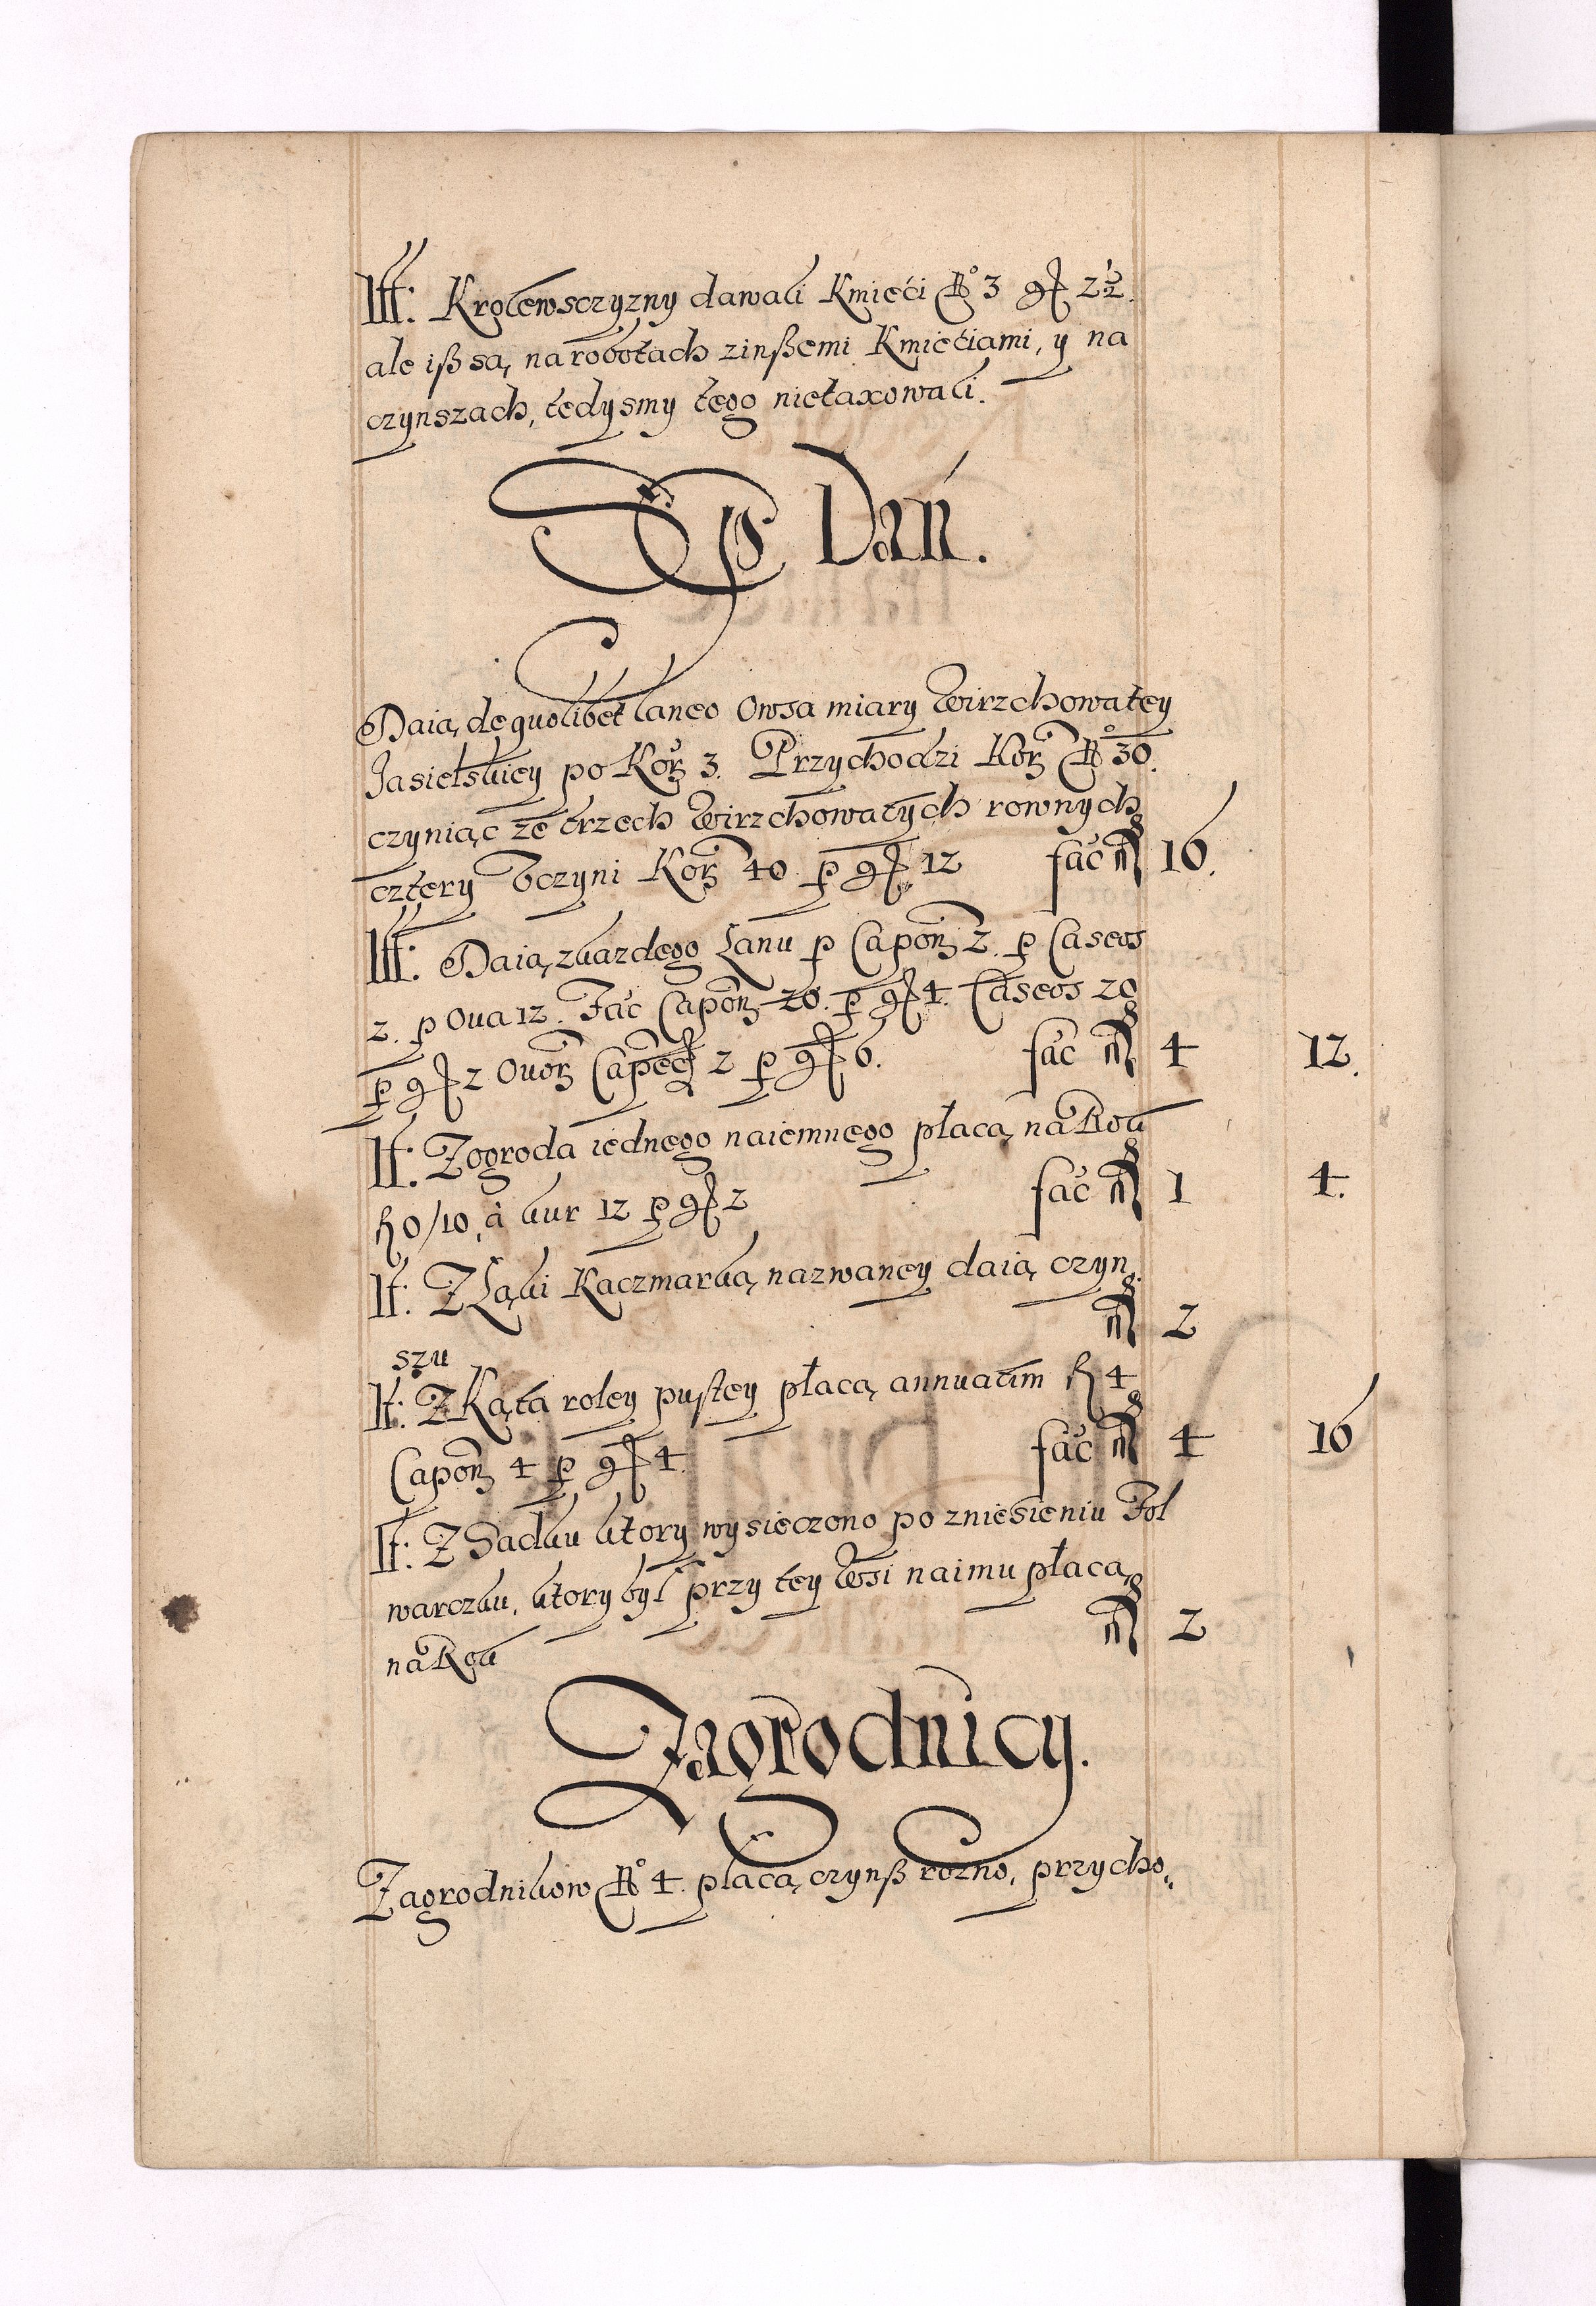 It: Krolewsczyzny dawali Kmieći No 3 gr 2½.
ale iß są, na robotach z inßemi Kmiećiami, y na
czynszach, tedysmy tego nietaxowali.
Dań.
Daią, de quolibet laneo Owsa miary Wirzchowatey
Jasielskiey po Kor 3. Przychodzi Kor No 30.
czyniąc ze trzech Wirzchowatych rownych
cztery Vczyni Kor 40 p gr 12 fac fl 16.
It: Daią, z kazdego Lanu p Capon 2. p Caseos
2. p Oua 12. Fac Capon 20. p gr 4. Caseos 20
p gr 2 Ouor Capec 2 p gr 6. fac fl 4 12.
It: Z ogroda iednego naiemnego płacą, na Rok
fl 0/10, á kur 12 p gr 2 fac fl 1 4.
It: Z Łąki Kaczmarką, nazwaney daią, czyn
szu fl 2
It: Z Kąta roley pustey płacą, annuatim fl 4
Capon 4 p gr 4. fac fl 4 16
It: Z Sadku ktory wysieczono po zniesieniu Fol
warczku, ktory był przy tey Wsi naimu płacą,
na Rok fl 2
Zagrodnicy.
Zagrodnikow No 4. płacą, czynß rozno, przycho„